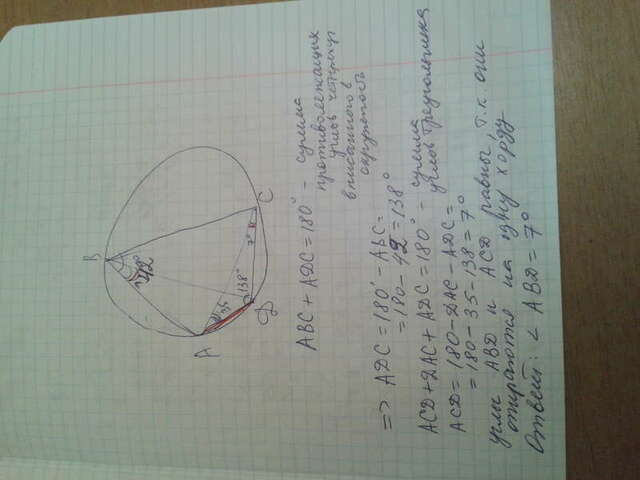 B
42°
A
35
138°
D
7°
C
ABC + ADC = 180° - сумма
противолежащих
углов четырехуг
вписанного в
окружность
=> ADC = 180° - ABC =
= 180 - 42 = 138°
ACD + DAC + ADC = 180° - сумма
углов треугольника
ACD = 180 - DAC - ADC =
= 180 - 35 - 138 = 7°
углы ABD и ACD равны, т.к. они
опираются на одну хорду
Ответ: < ABD = 7°